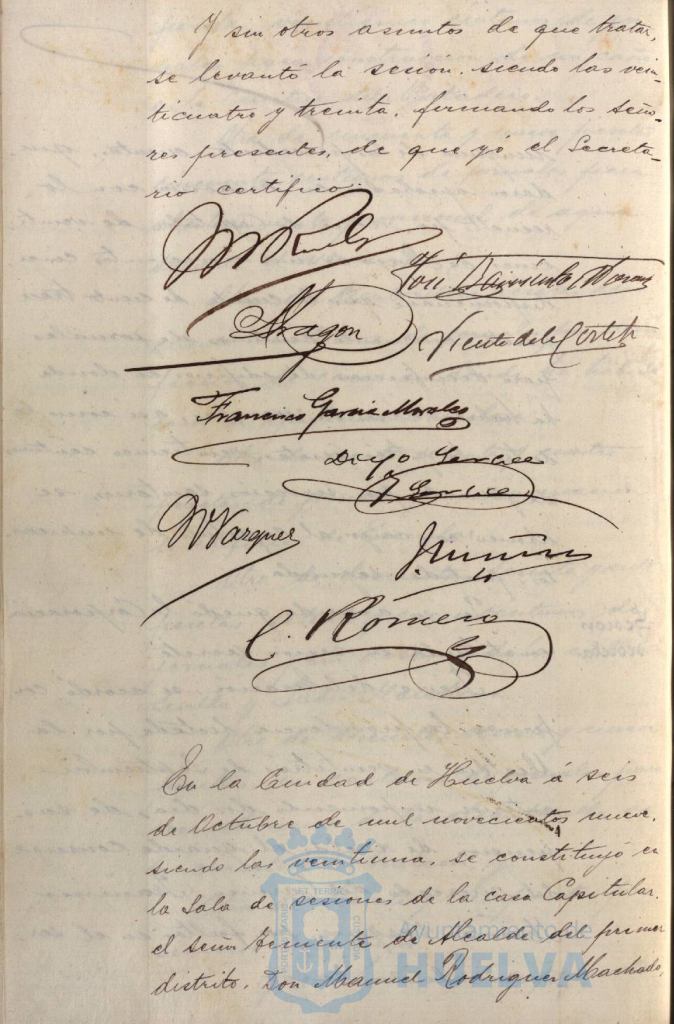 Y sin otros asuntos de que tratar,
se levantó la sesión, siendo las vein-
ticuatro y treinta, firmando los seño-
res presentes, de que yó el Secreta-
rio certifico.
José Barrientos
Aragon
Vicente de la Corte
Francisco Garcia Morales
Diego
M Vazquez
C. Romero
En la Ciudad de Huelva á seis
de Octubre de mil novecientos nueve,
siendo las veintiuna, se constituyó en
la Sala de sesiones de la casa Capitular,
el señor Teniente de Alcalde del primer
distrito, Don Manuel Rodriguez Machado,
Ayuntamiento de
HUELVA